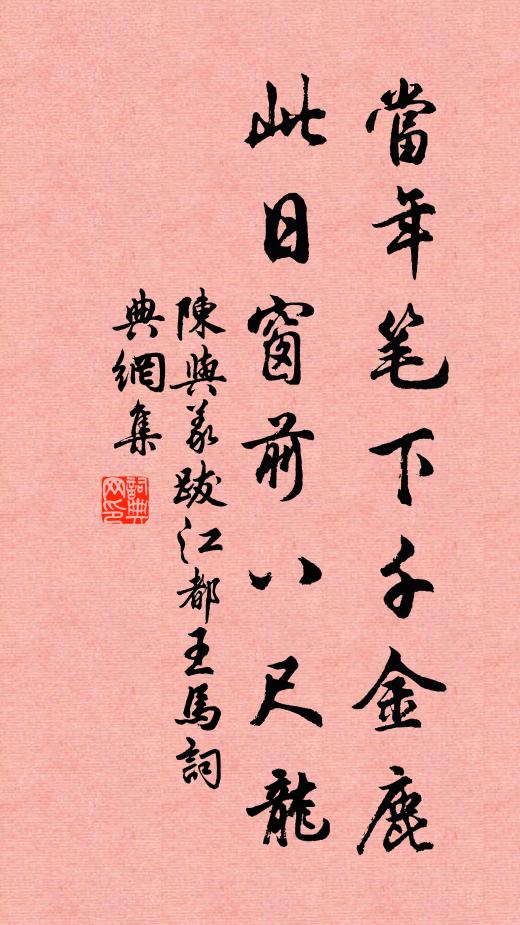 當年笔下千金鹿
此日窗前八尺龍
陳與義跋江都王馬詞
典網集
詞典网印